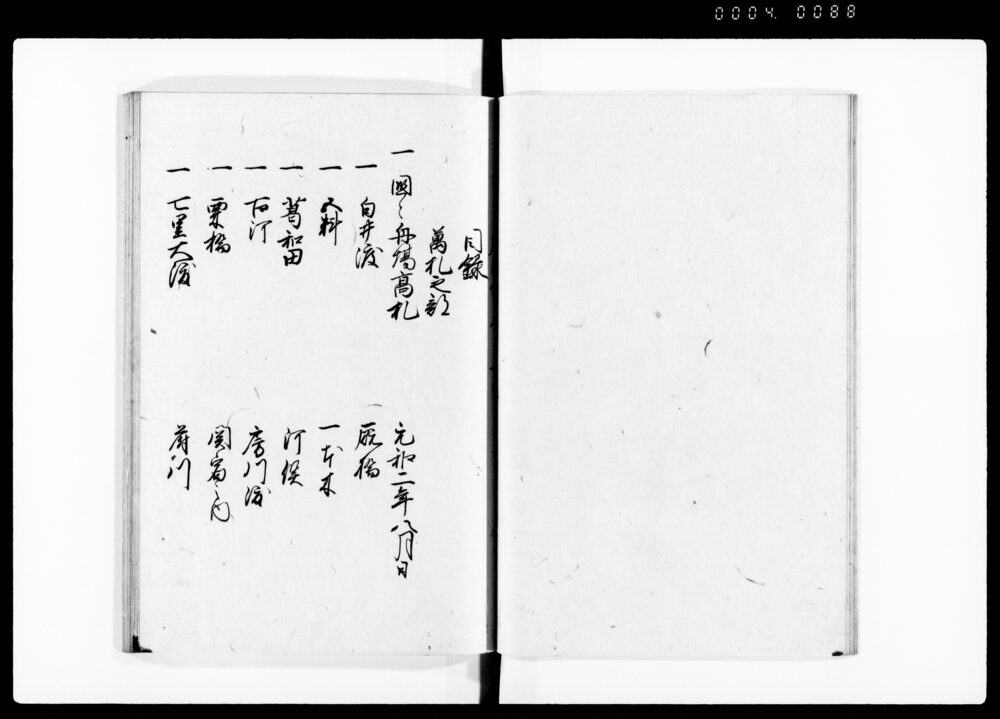 0004 0088
目録
萬札之部
一 國々舟場高札 元和二年八月日
一 白井渡 厩橋
一 五料 一本木
一 葛和田 河俣
一 古河 房川渡
一 栗橋 関宿之内
一 七里大渡 府川